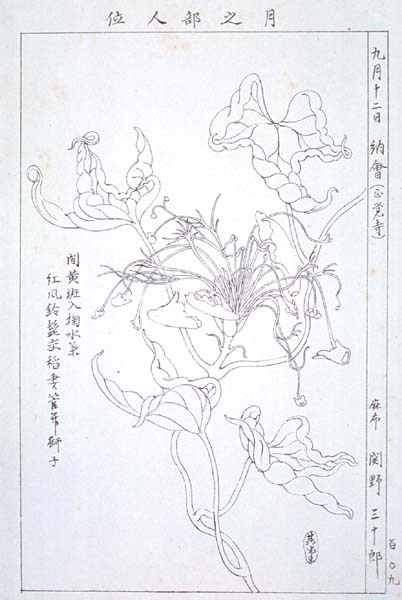 月之部人位
九月十二日 納會(正覚寺) 麻布 関野三十郎
百〇九
間黄斑入掬水葉
紅風鈴髭交稲妻管弁獅子